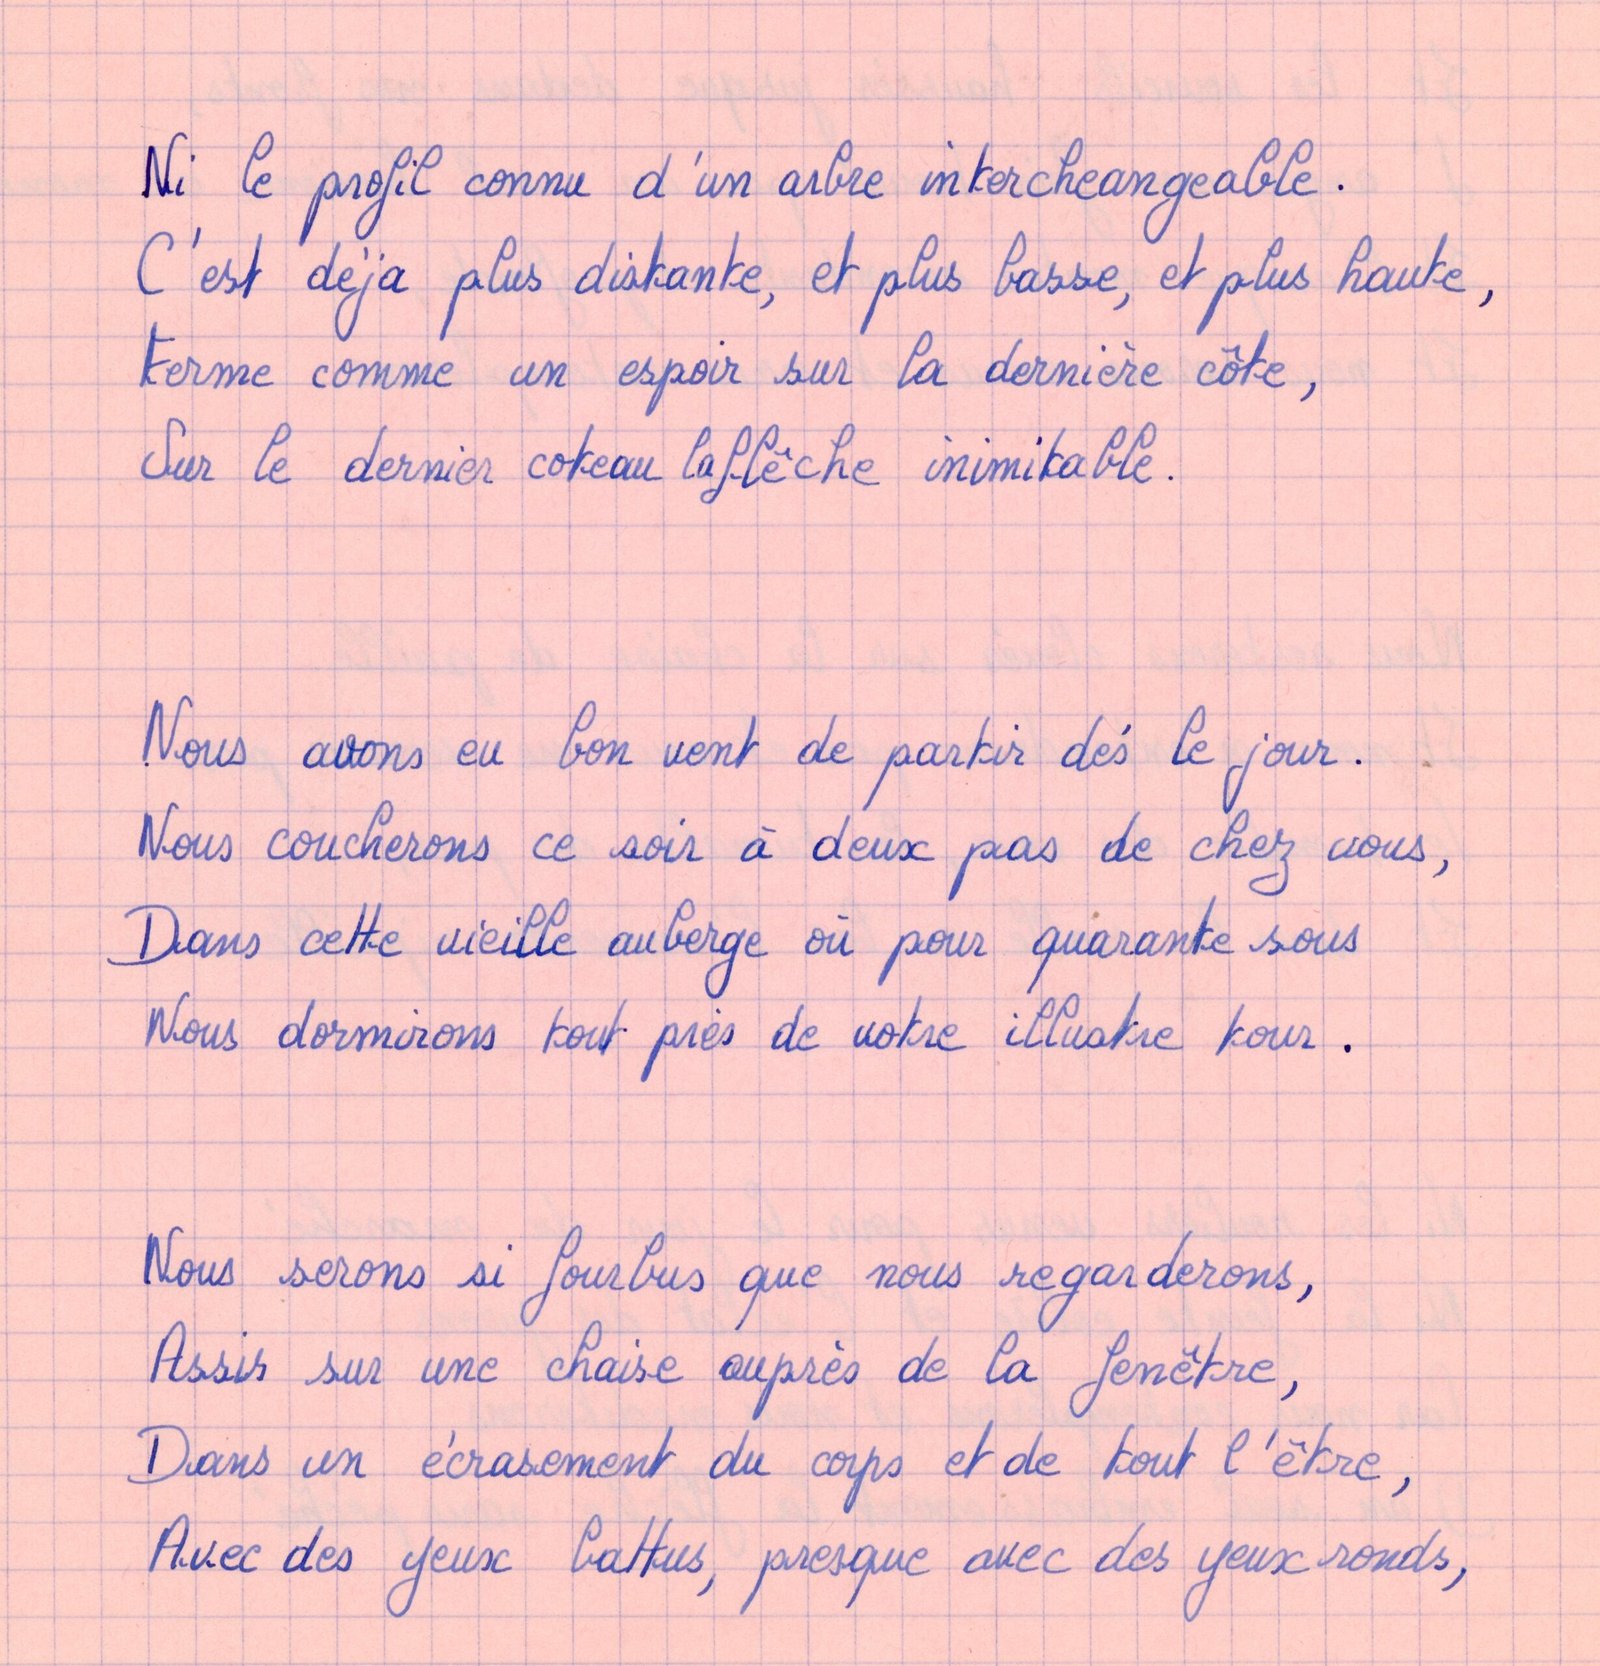 Ni le profil connu d'un arbre intercheangeable.
C'est déja plus distante, et plus basse, et plus haute,
Ferme comme un espoir sur la dernière côte,
Sur le dernier coteau la flêche inimitable.
Nous avons eu bon vent de partir dés le jour.
Nous coucherons ce soir à deux pas de chez vous,
Dans cette vieille auberge où pour quarante sous
Nous dormirons tout près de votre illustre tour.
Nous serons si fourbus que nous regarderons,
Assis sur une chaise auprès de la fenêtre,
Dans un écrasement du corps et de tout l'être,
Avec des yeux battus, presque avec des yeux ronds,